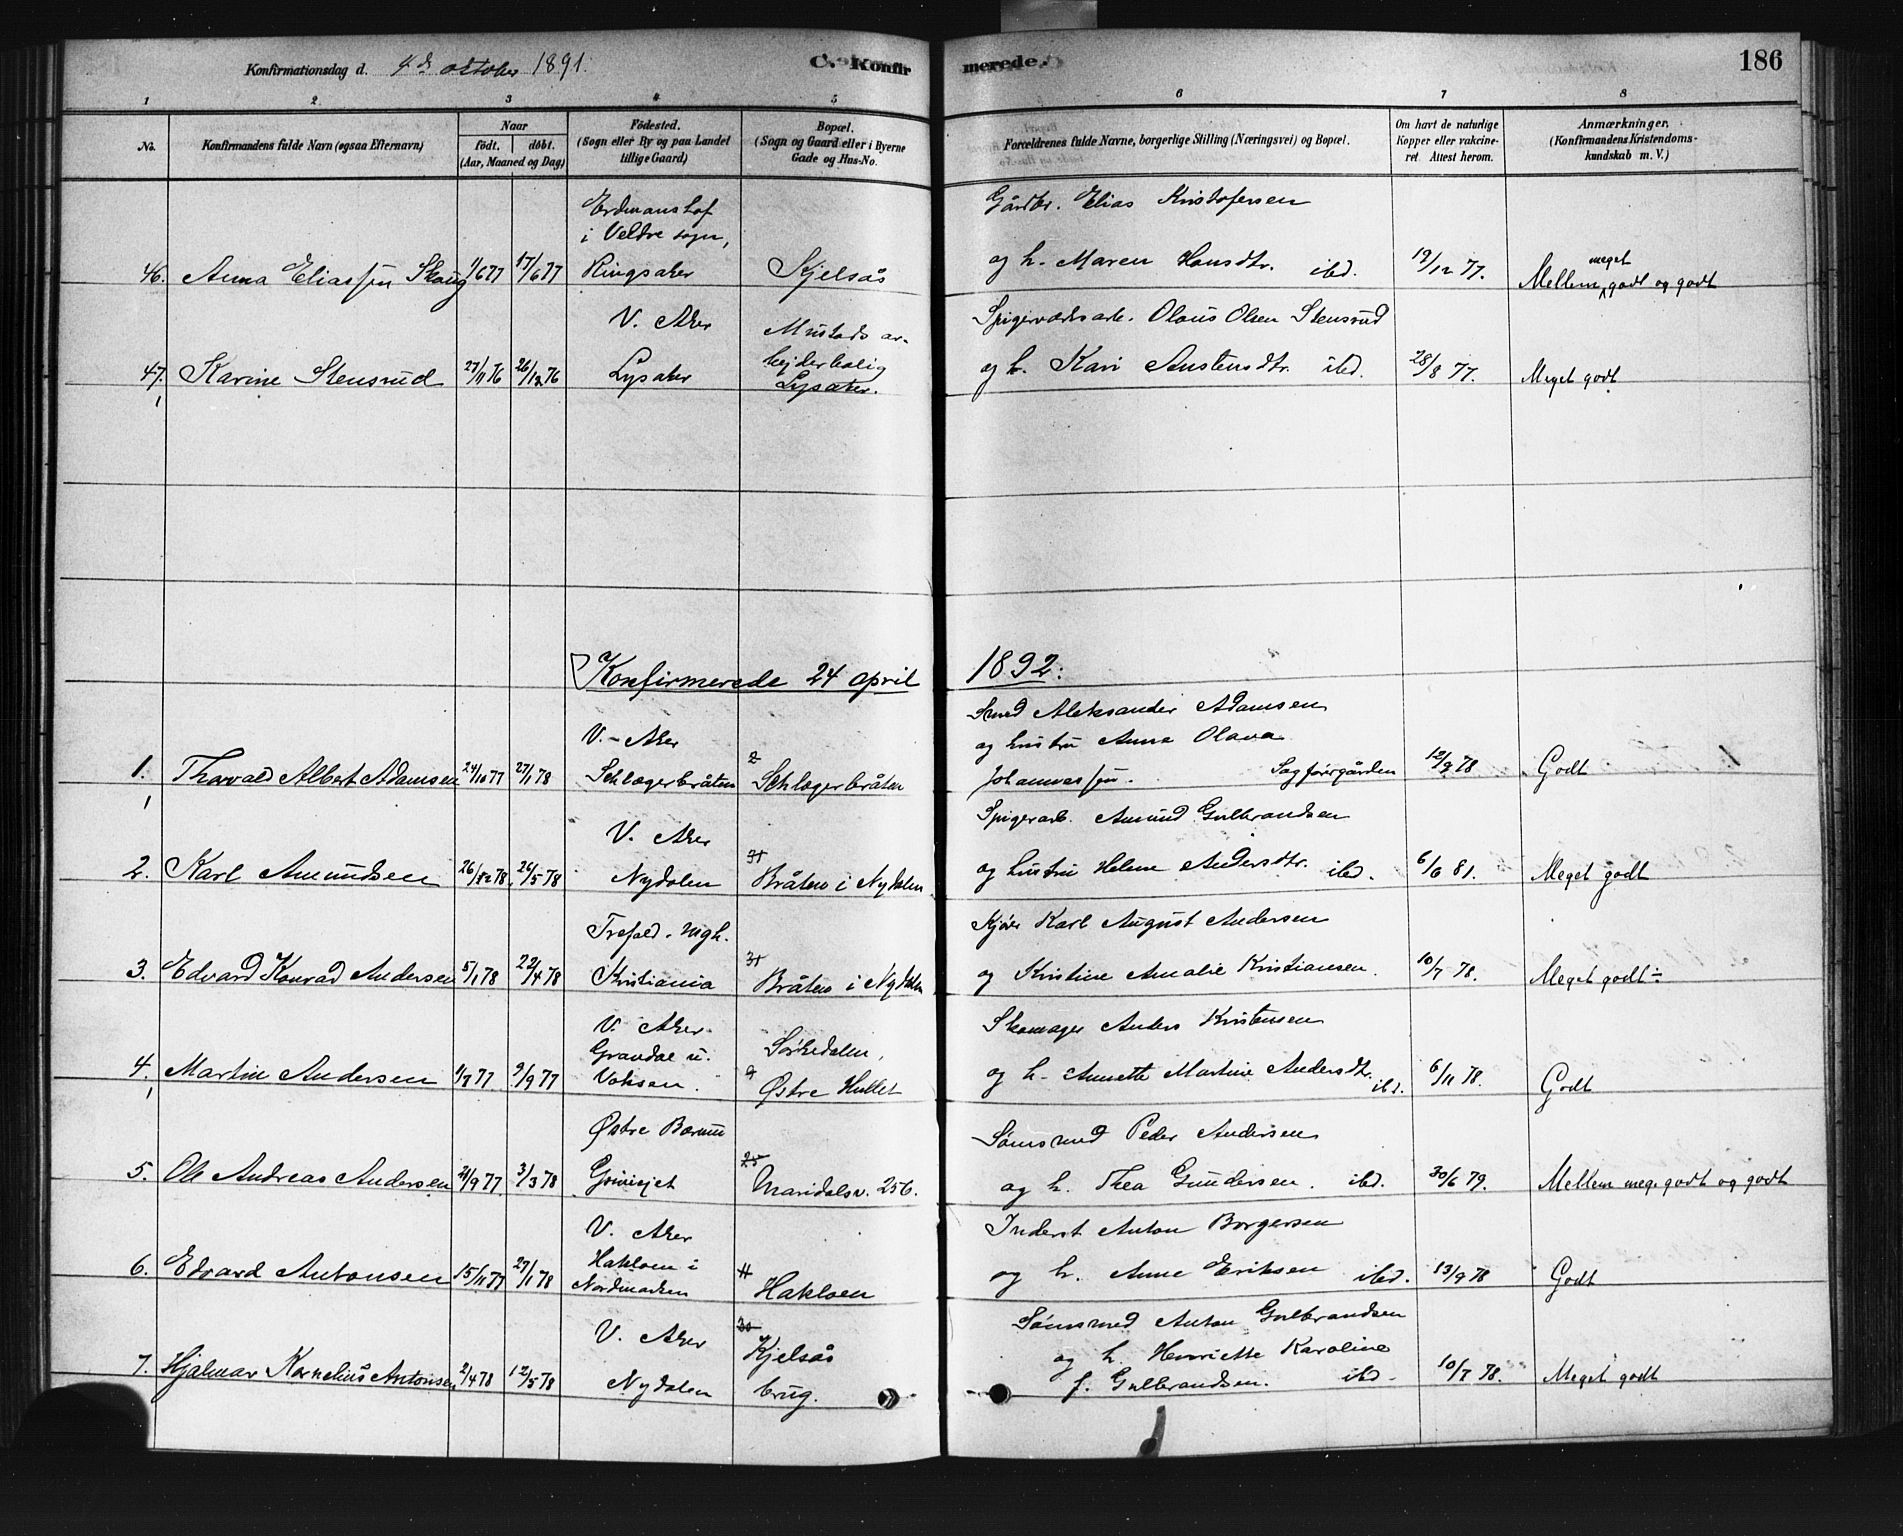 Konfirmationsdag d. 4de october 1891.
C. Konfirmerede. 186
1 2 3 4 5 6 7 8
No.
Konfirmandens fulde Navn (ogsaa Efternavn)
Naar
födt. döbt.
(Aar, Maaned og Dag)
Födested.
(Sogn eller By og paa Landet
tillige Gaard)
Bopæl.
(Sogn og Gaard eller i Byerne
Gade og Hus-No.
Forældrenes fulde Navne, borgerlige Stilling (Næringsvei) og Bopæl.
Om havt de naturlige
Kopper eller vakcine-
ret Attest herom.
Anmærkninger.
(Konfirmandens Kristendoms-
kundskab m. V.)
46. Anna Eliassen Skaug 1/6 77 17/6 77
Erdmanshof
i Veldre sogn,
Ringsaker
Kjelsås
Gårdbr. Elias Kristofersen
og h. Maren Hansdtr. ibd.
19/12 77.
Mellem meget godt og godt
47. Karine Stensrud 27/11 76 26/12 76
V. Aker
Lysaker
Mustads ar-
bejderbolig
Lysaker.
Spigerværksarb. Olaus Olsen Stensrud
og h. Kari Austensdtr. ibd.
28/8 77.
Meget godt
Konfirmerede 24 april 1892:
1. Thorvald Albert Adamsen 24/10 77 27/1 78
V. Aker
Schlagerbråten
2
Schlagerbråten
Smed Aleksander Adamsen
og hustru Anne Olava
Johannessen. Sagførergården
12/9 78
Godt
2. Karl Amundsen 26/ 78. 26/5 78
V. Aker
Nydalen
31
Bråten i Nydalen.
Spigerarb. Amund Gulbrandsen
og hustru Helene Andersdtr. ibd.
6/6 81.
Meget godt
3. Edvard Konrad Andersen 5/1 78 22/4 78
Trefold. mgh.
Kristiania
31
Bråten i Nydalen
Kjører Karl August Andersen
og Kristine Amalie Kristiansen.
10/7 78.
Meget godt÷
4. Martin Andersen 1/7 77 9/9 77
V. Aker
Grandal u.
Voksen.
Sørkedalen,
9
Østre Hullet
Skomager Anders Kristensen
og h. Annette Martine Andersdtr. ibd.
6/11 78.
Godt
5. Ole Andreas Andersen 21/9 77 3/3 78
Østre Bærum
25
Maridalsv. 256.
Sømsmed Peder Andersen
og h. Thea Gundersen. ibd.
30/6 79.
Mellem meg. godt og godt
6. Edvard Antonsen 15/11 77 27/1 78
V. Aker
Hakloen i
Nordmarken
11
Hakloen
Inderst Anton Borgersen
og h. Anne Eriksen ibd.
13/9 78
Godt
7. Hjalmar Kornelius Antonsen 2/4 78 12/5 78
V. Aker
Nydalen
30
Kjelsås
brug.
Sømsmed Anton Gulbrandsen
og h. Henriette Karoline
f. Gulbrandsen. ibd.
10/7 78.
Meget godt